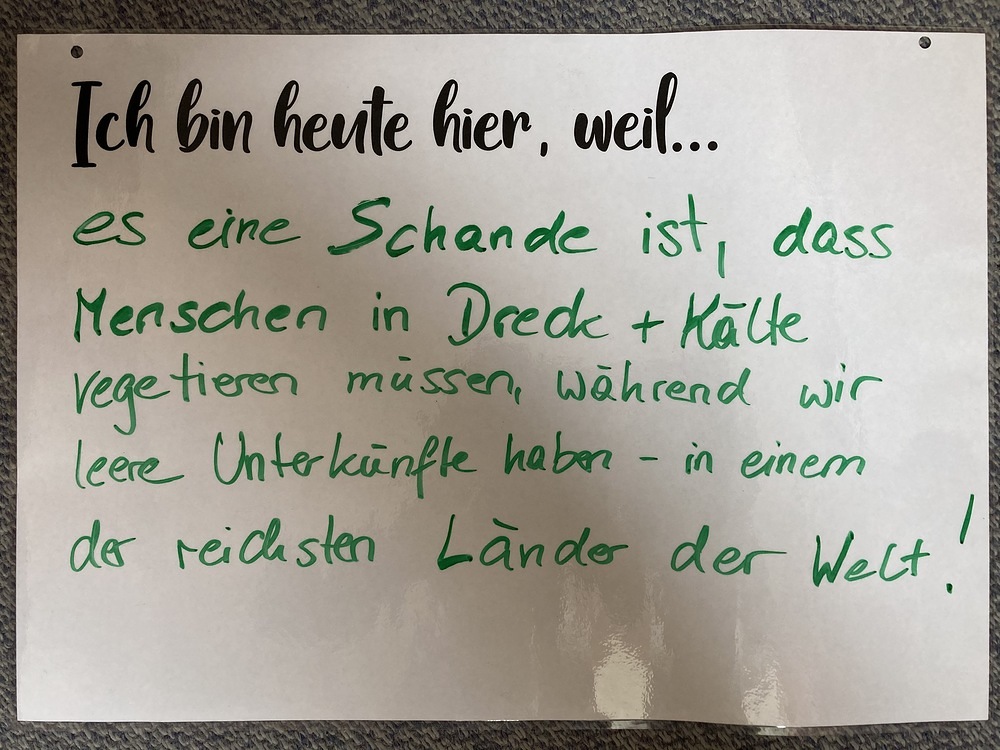 Ich bin heute hier, weil...
es eine Schande ist, dass
Menschen in Dreck + Kälte
vegetieren müssen, während wir
leere Unterkünfte haben - in einem
der reichsten Länder der Welt!